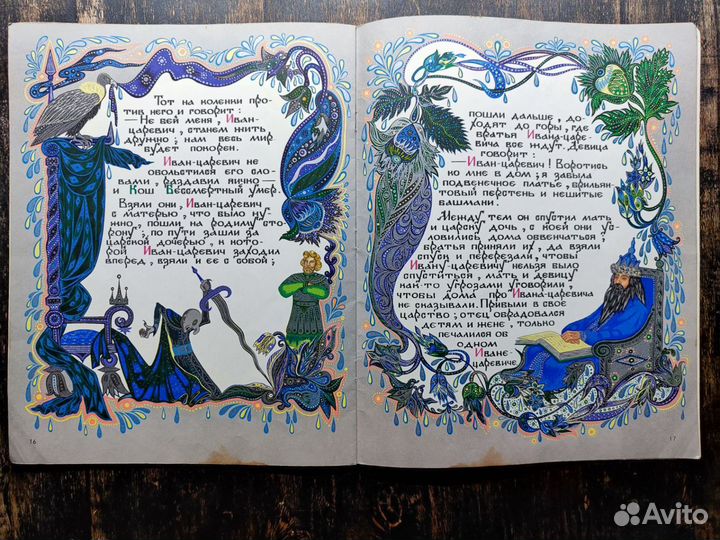 Тот на коленки про-
тив него и говорит:
— Не бей меня, Иван-
царевич, станем жить
дружно; нам весь мир
будет покорен.
Иван-царевич не
обольстился его сло-
вами, раздавил яично —
и Кош Бессмертный умер.
Взяли они, Иван-царевич
с матерью, что было ну-
жно, пошли на родиму сто-
рону; по пути зашли за
царской дочерью, к кото-
рой Иван-царевич заходил
вперед, взяли и ее с собой;
16
пошли дальше, до-
ходят до горы, где
братья Ивана-царе-
вича все ждут. Девица
говорит:
— Иван-царевич! Воротись
ко мне в дом; я забыла
подвенечное платье, брильян-
товый перстень и нешитые
башмаки.
Между тем он спустил мать
и царску дочь, с коей они ус-
ловились дома обвенчаться;
братья приняли их, да взяли
спуск и перерезали, чтобы
Ивану-царевичу нельзя было
спуститься, мать и девицу
как-то угрозами уговорили,
чтобы дома про Ивана-царевича
не сказывали. Прибыли в свое
царство; отец обрадовался
детям и жене, только
печалился об
одном
Иване-
царевиче.
17
Avito